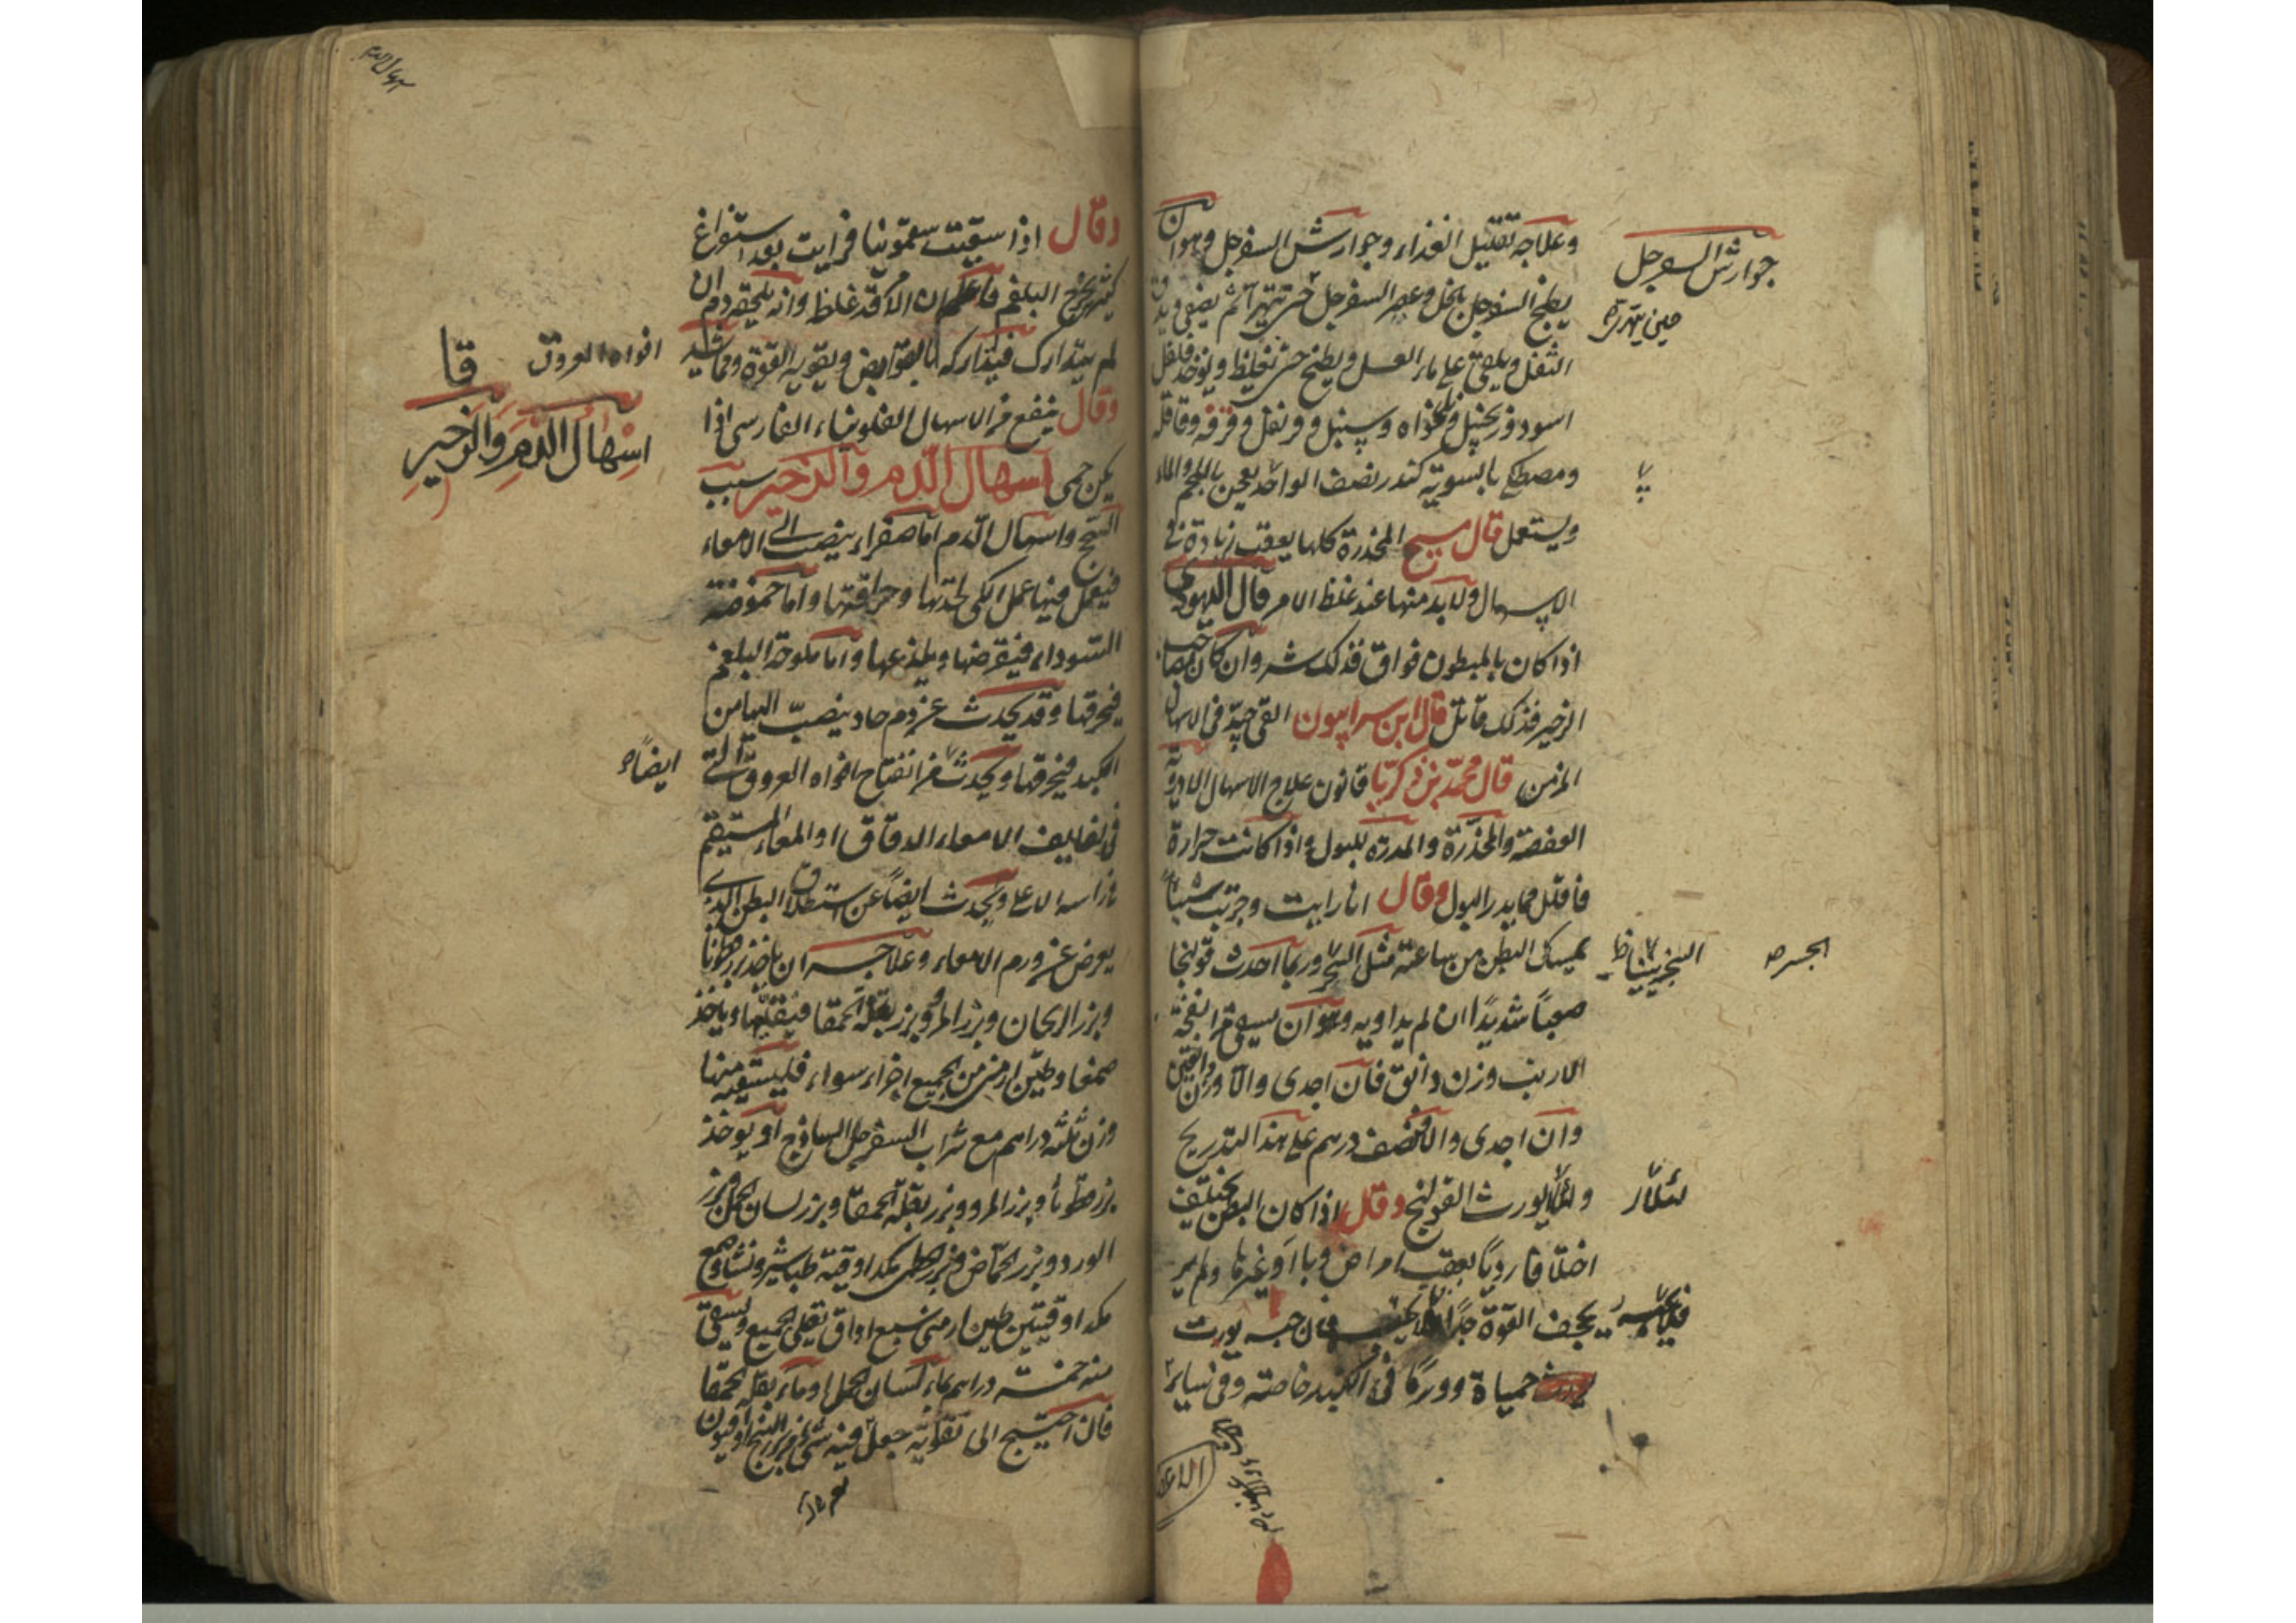 وعلاجه تقليل الغذاء وجوارش السفرجل وهو ان
يطبخ السفرجل بالخل وعصر السفرجل حتى يتهرا ثم يصفى ويدق
الثفل ويلقى على ماء العسل ويطبخ حتى تغليظ ويوخذ فلفل
اسود وزنجبيل ونانخذاه وسنبل وقرنفل وقرفه وقاقله
ومصطكى بالسوية كندر نصف الواحد يعجن بالملحم والماء
ويستعمل قال مسيح المخدرة كلها يعقب زيادة فى
الاسهال ولابد منها عند غلظ الامر قال اليهودى
اذا كان بالمبطون فواق فذلك شر وان كان بصاحب
الزحير فذلك قاتل قال ابن سرابيون القى جيد فى الاسهال
المزمن قال محمد بن زكريا قانون علاج الاسهال الادوية
العفصة والمخدرة والمدرة للبول واذا كانت حرارة
فاقلل مما يدر البول وقال انا رايت وجربت شيئا
يمسك البطن من ساعته مثل السحر وربما احدث قولنجا
صعبا شديدا ان لم يداويه وهو ان يسقى من انفحة
الارنب وزن دانق فان اجدى والا وزن دانقين
وان اجدى والا فنصف درهم على هذا التدريج
ولئلا يورث القولنج وقال اذا كان البطن يختلف
اختلافا رديا بعقب امراض وبا او غيرها ولم ير
يجف القوة جدا فلا فان حبسه يورث
حمياة وورما فى الكبد خاصته وفى ساير
جوارش السفرجل
حين يتهرا
لئلا
وقال اذا سقيت سقمونيا فرايت بعد استفراغ
كثير يخرج البلغم فاعلم ان الامر قد غلظ وانه يلحقه دم ان
لم يتدارك فتداركه بالقوابض ويقويه القوة ومما يشد
وقال ينفع من الاسهال الفلونيا الفارسى اذا
يكن حمى اسهال الدم والزحير سبب
السحج واسهال الدم اما صفراء ينصب الى الامعاء
فيعمل فيها عمل الكى لحدتها وحراقتها واما حموضة
السوداء فيقرضها ويلذعها واما ملوحة البلغم
فيحرقها وقد يحدث عن دم حاد ينصب اليها من
الكبد فيحرقها ويحدث من انفتاح افواه العروق التى
فى لفايف الامعاء الدقاق او المعاء المستقيم
من راسه الاعلى ويحدث ايضا عن استطلاق البطن الذى
يعرض عن ورم الامعاء وعلاجه ان ياخذ بزرقطونا
وبزر الريحان وبزر المرو وبزر بقلة الحمقا فيقليها وياخذ
صمغا وطين ارمنى من الجميع اجزاء سواء فليستفيه منها
وزن ثلثه دراهم مع شراب السفرجل الساذج او يوخذ
بزرقطونا وبزر المرو وبزر بقلة الحمقا وبزر لسان الحمل وبزر
الورد وبزر الحماض وبزر الخطمى بكدا وقية طباشير ونشا وصمغ
بكدا وقيتين طين ارمنى سبع اواق تقلى الجميع ويسقى
منه خمسة دراهم بماء لسان الحمل او ماء بقلة الحمقا
فان احتيج الى تقويته جعل فيه شئ من بزر البنج وافيون
افواه العروق
قا
اسهال الدم والزحير
ايضا
اسهال الدم